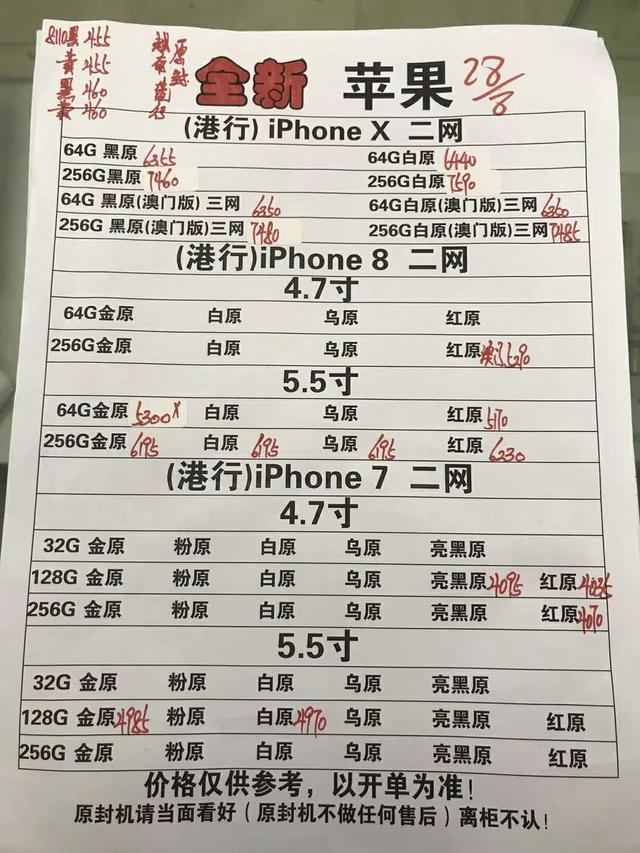 8110黑 455 越 原
黄 455 南 封
黑 460
黄 460
全新 苹果 28/8
(港行) iPhone X 二网
64G 黑原 6355 64G白原 6440
256G黑原 7460 256G白原 7590
64G 黑原(澳门版) 三网 6350 64G白原(澳门版)三网 6350
256G 黑原(澳门版)三网 7480 256G白原(澳门版)三网 7485
(港行)iPhone 8 二网
4.7寸
64G金原 白原 乌原 红原
256G金原 白原 乌原 红原 澳门5290
5.5寸
64G金原 5300X 白原 乌原 红原 5170
256G金原 6195 白原 6195 乌原 6195 红原 6230
(港行)iPhone 7 二网
4.7寸
32G 金原 粉原 白原 乌原 亮黑原
128G 金原 粉原 白原 乌原 亮黑原 4095 红原 4035
256G 金原 粉原 白原 乌原 亮黑原 红原 4070
5.5寸
32G 金原 粉原 白原 乌原 亮黑原
128G 金原 4985 粉原 白原 4970 乌原 亮黑原 红原
256G 金原 粉原 白原 乌原 亮黑原 红原
价格仅供参考，以开单为准！
原封机请当面看好（原封机不做任何售后）离柜不认！